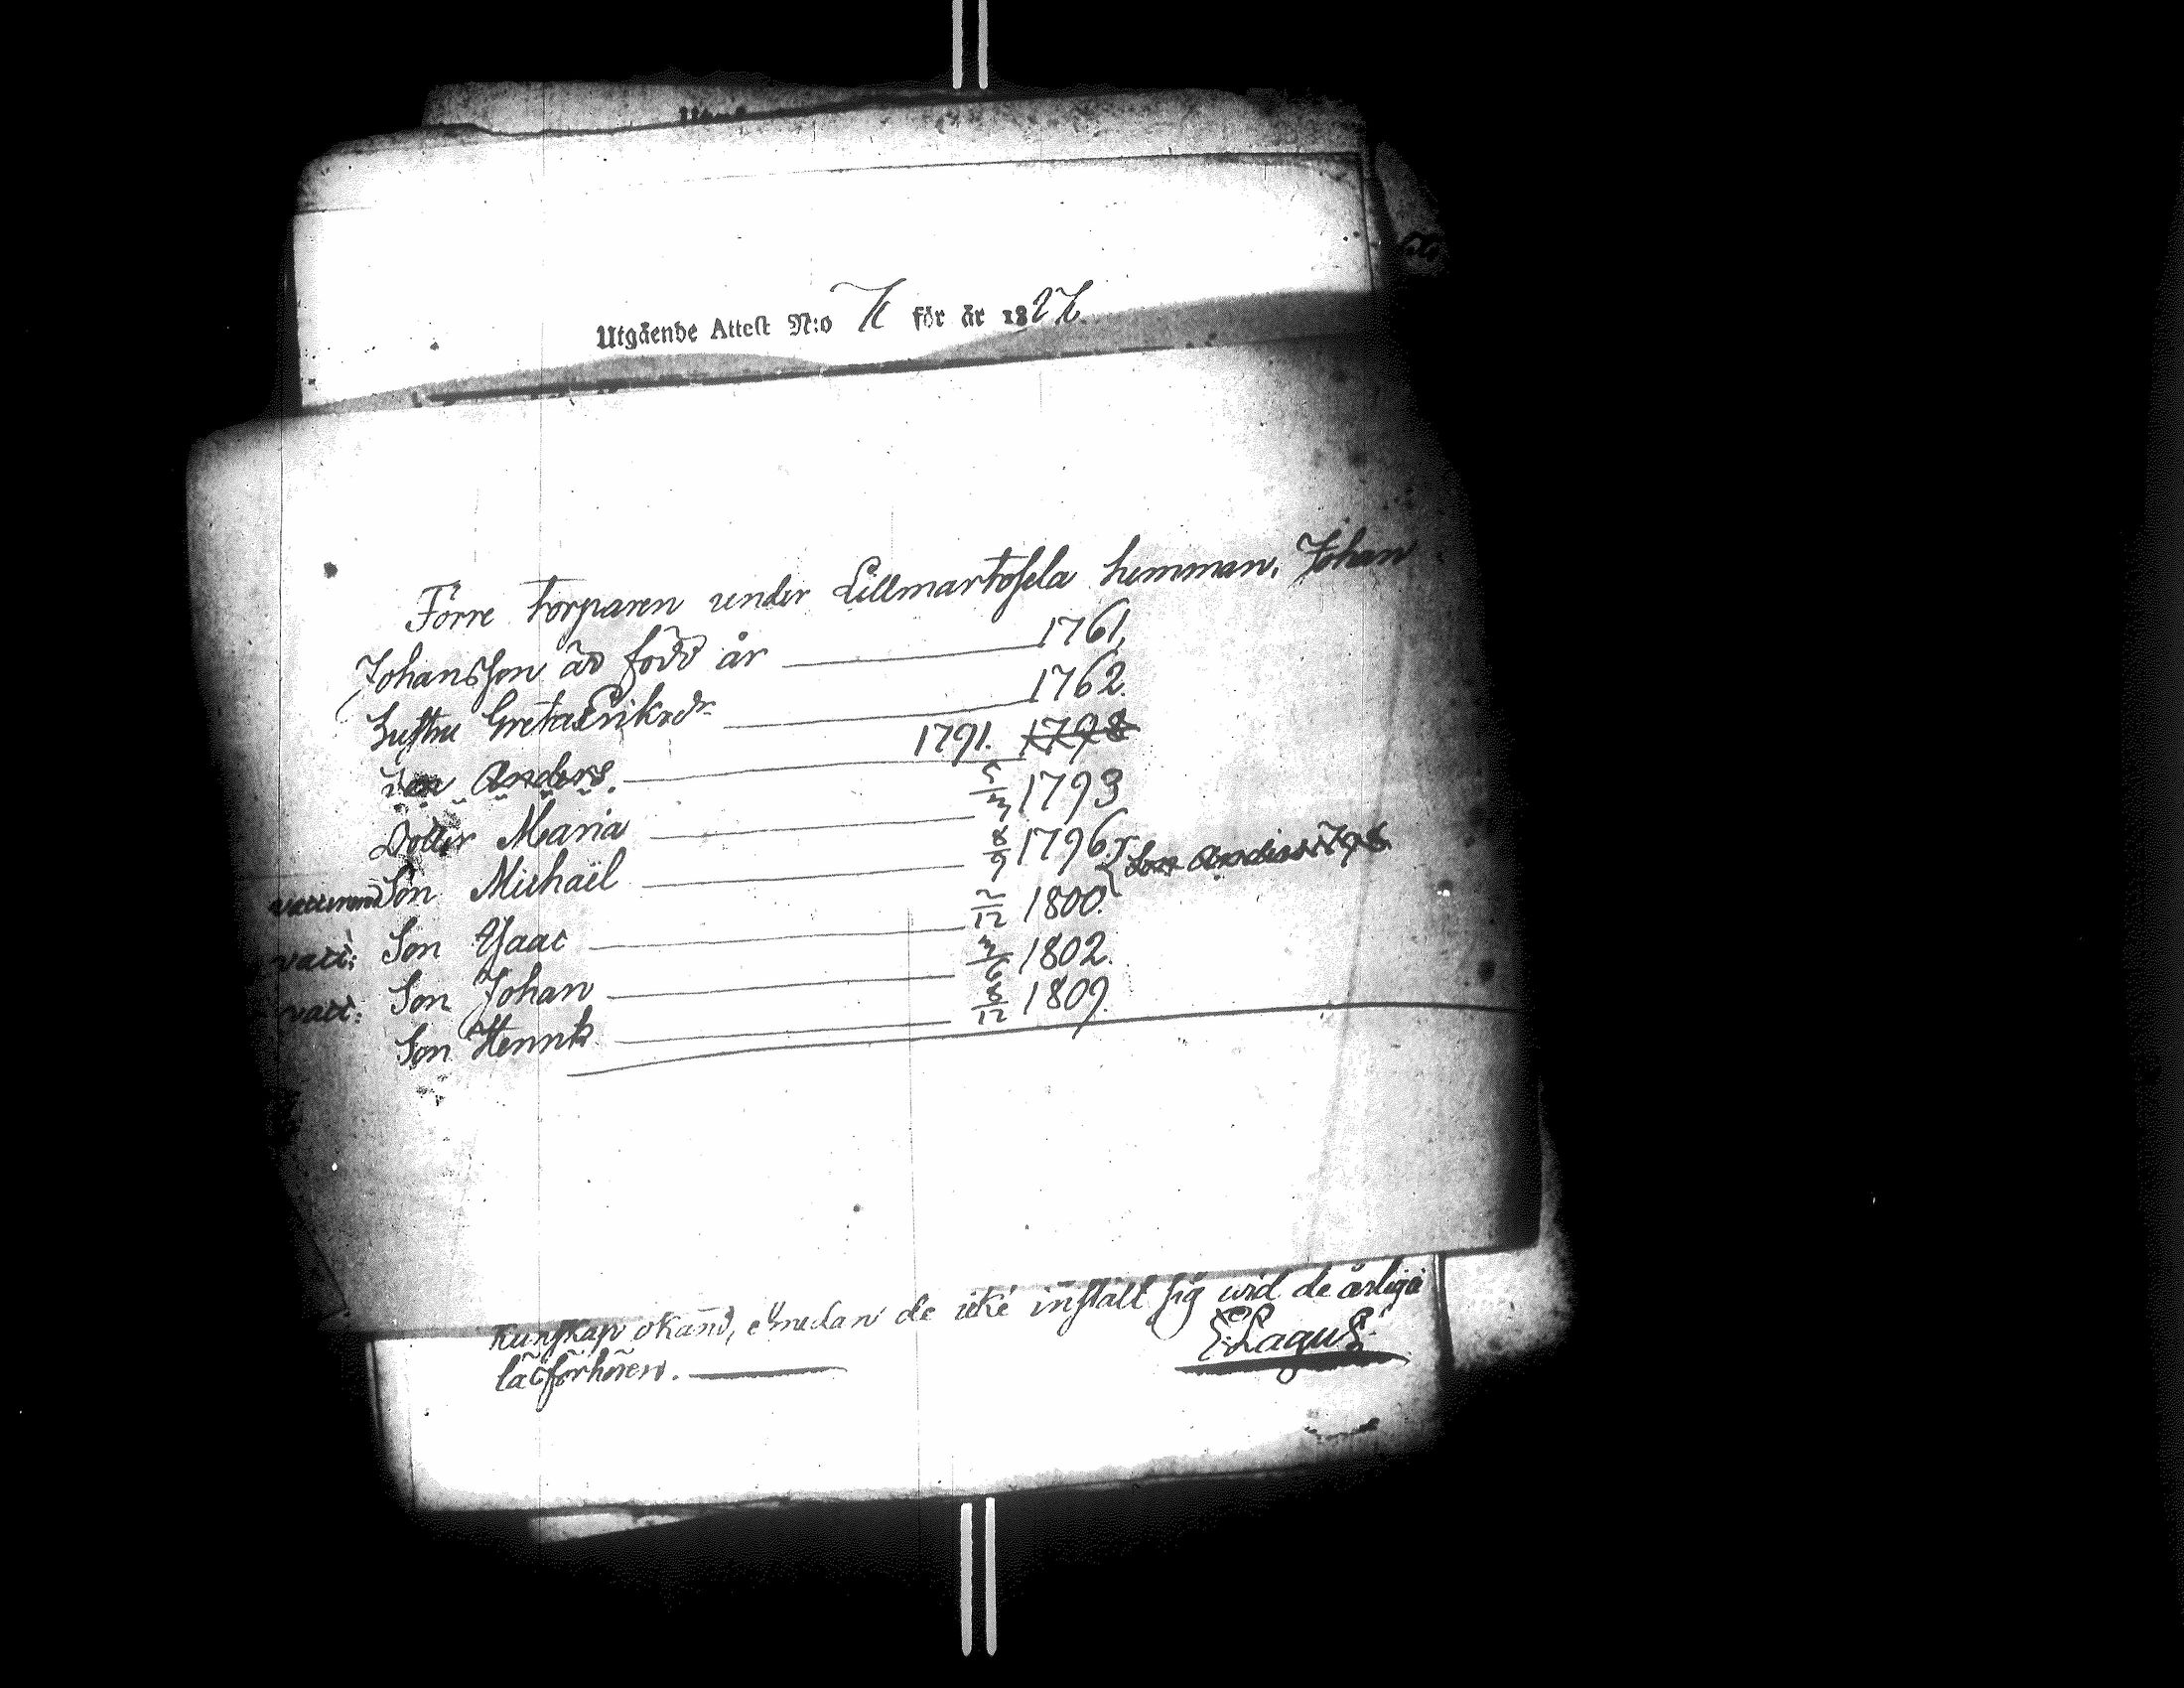 Utgående Attest N:o 7 för år 1827.
Förre torparen under Lillmartosela hemman, Johan
Johansson är född år 1761,
Hustru Greta Eriksdr 1762.
Son Anders. 1791. 1798
Dotter Maria 5/3 1793
Son Michaël 8/9 1796. Son Anders 1798
vatt: Son Isaac 2/12 1800.
vatt: Son Johan 3/6 1802.
Son Henrik 8/12 1809.
Kunskap okänd, emedan de icke instält sig wid de årliga
läsförhören.
E. Lagus